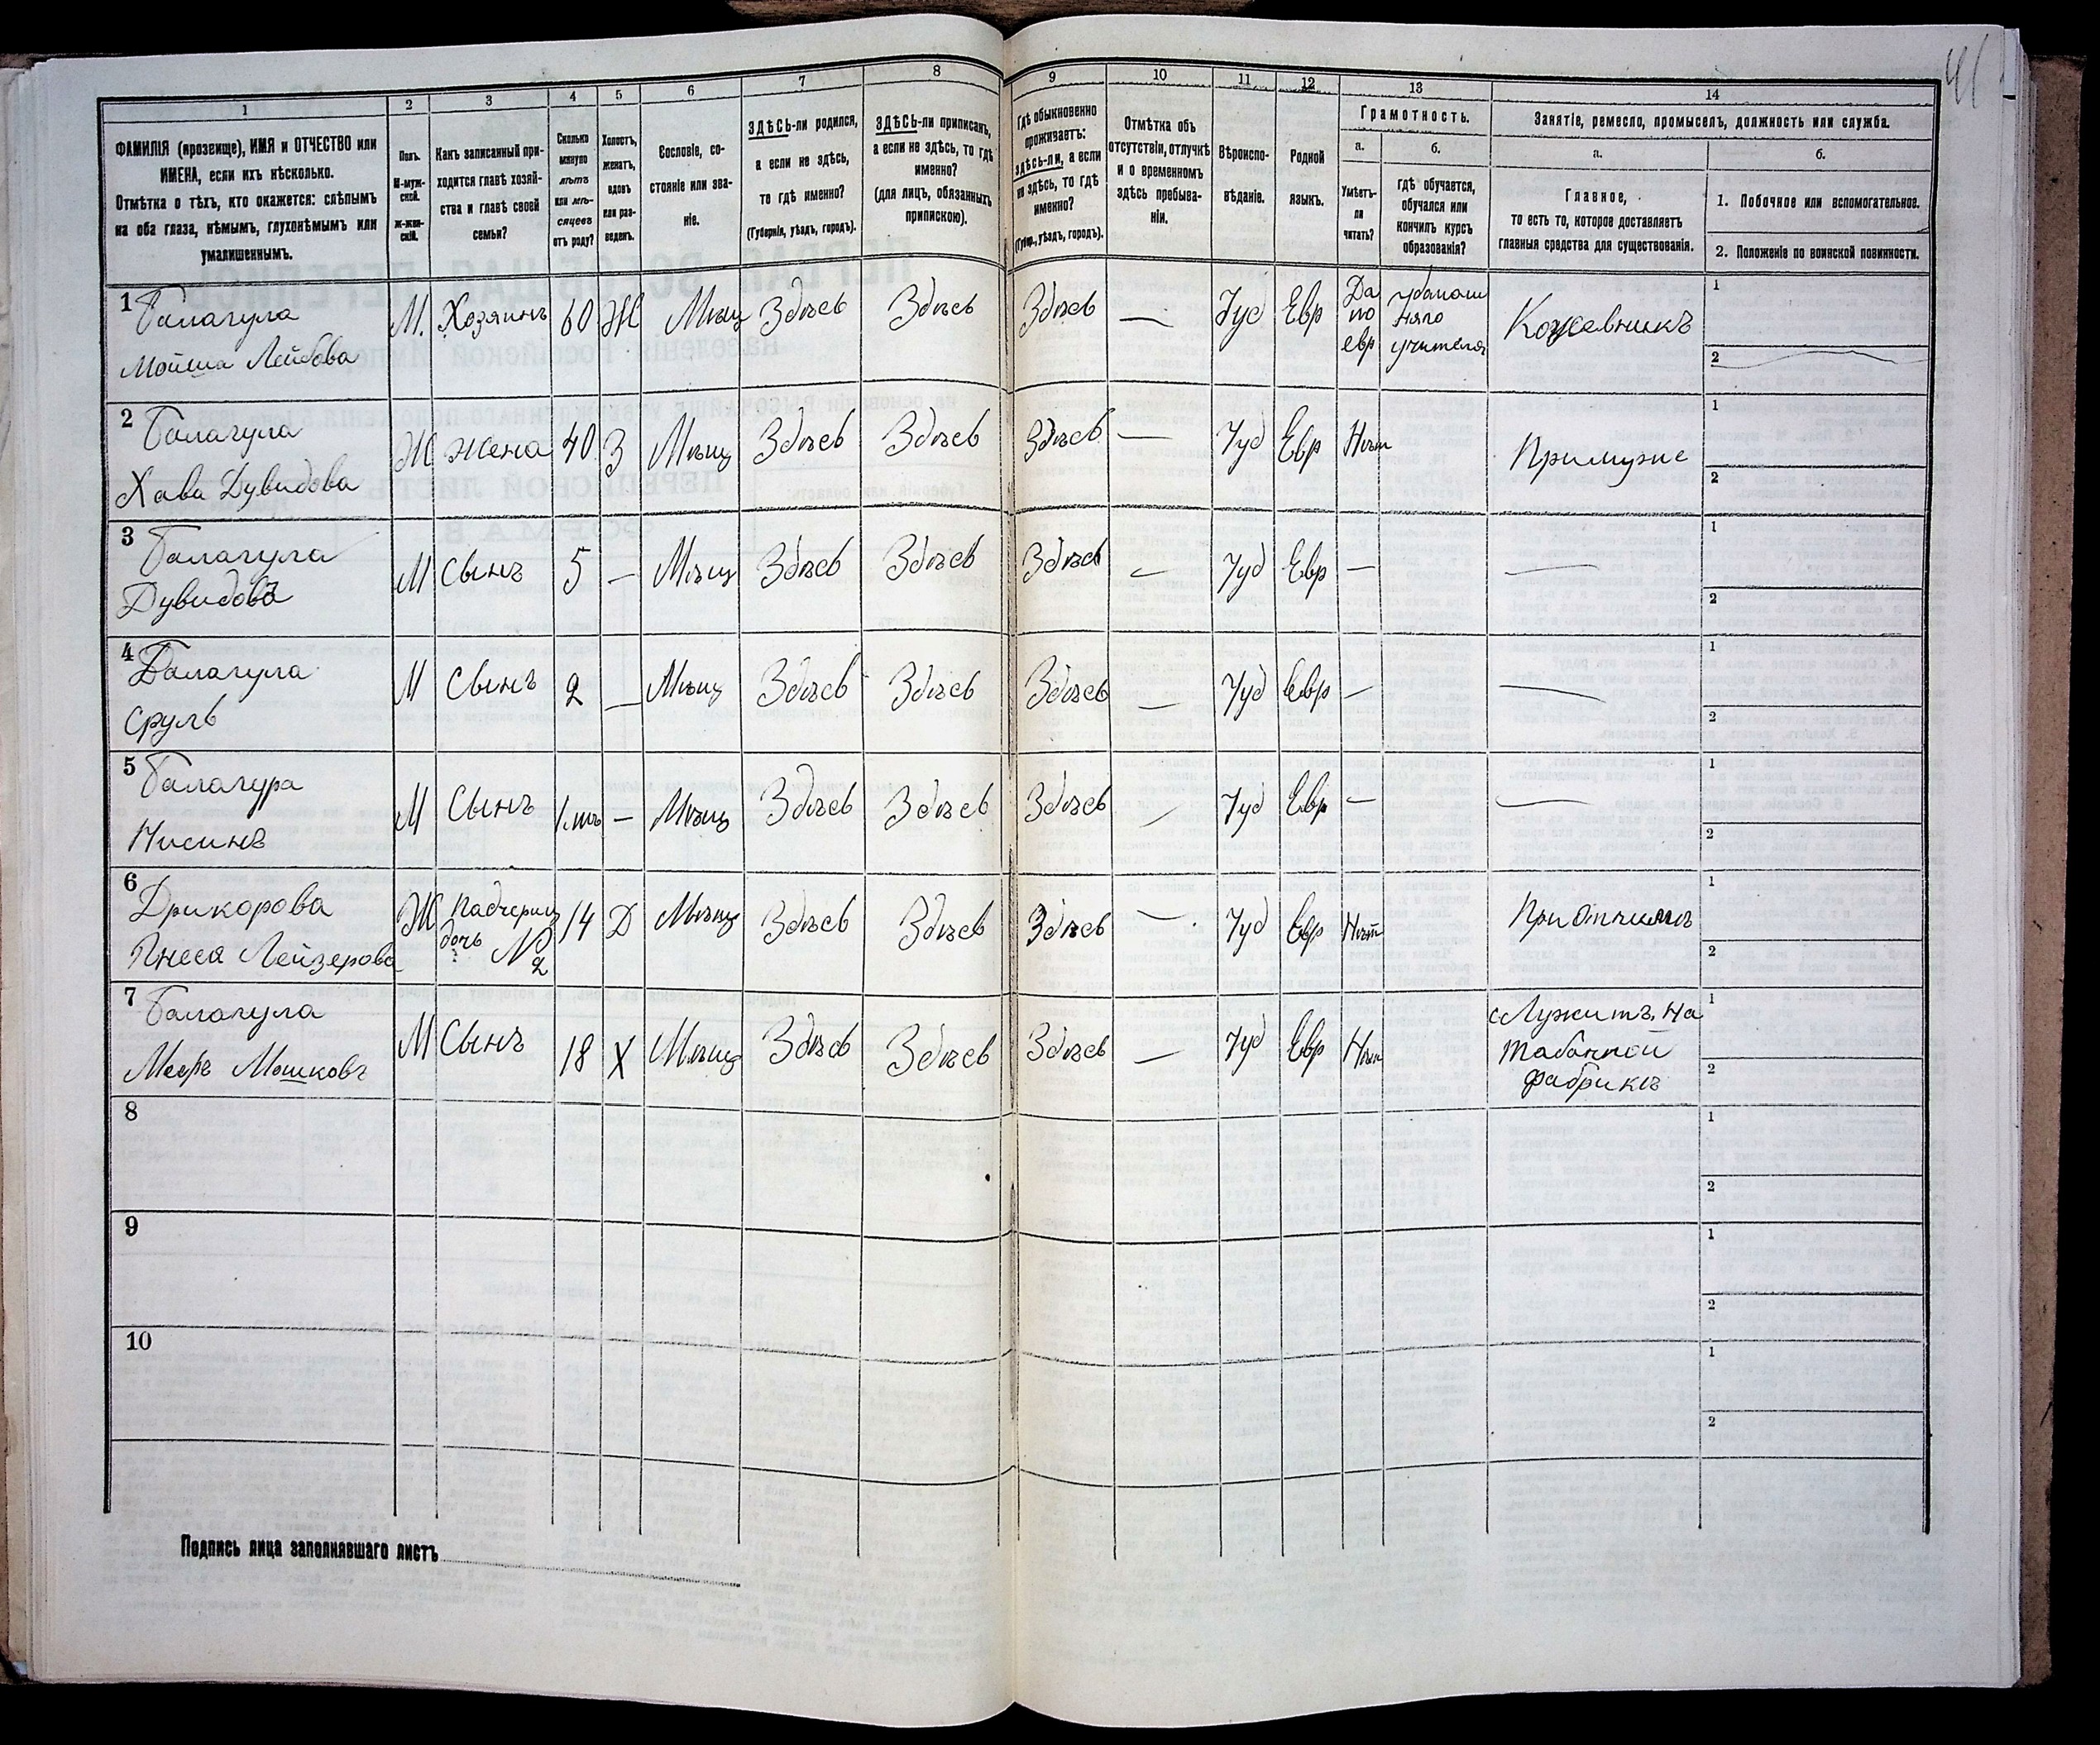 41
1 2 3 4 5 6 7 8 9 10 11 12 13 14
ФАМИЛІЯ (прозвище), ИМЯ и ОТЧЕСТВО или
ИМЕНА, если ихъ нѣсколько.
Отмѣтка о тѣхъ, кто окажется: слѣпымъ
на оба глаза, нѣмымъ, глухонѣмымъ или
умалишеннымъ.
Полъ.
М-муж-
ской.
Ж-жен-
скій.
Какъ записанный при-
ходится главѣ хозяй-
ства и главѣ своей
семьи?
Сколько
минуло
лѣтъ
или мѣ-
сяцевъ
отъ роду?
Холостъ,
женатъ,
вдовъ
или раз-
веденъ.
Сословіе, со-
стояніе или зва-
ніе.
ЗДѢСЬ-ли родился,
а если не здѣсь,
то гдѣ именно?
(Губернія, уѣздъ, городъ).
ЗДѢСЬ-ли приписанъ,
а если не здѣсь, то гдѣ
именно?
(для лицъ, обязанныхъ
припискою).
Гдѣ обыкновенно
проживаетъ:
здѣсь-ли, а если
не здѣсь, то гдѣ
именно?
(Губер., уѣздъ, городъ).
Отмѣтка объ
отсутствіи, отлучкѣ
и о временномъ
здѣсь пребыва-
ніи.
Вѣроиспо-
вѣданіе.
Родной
языкъ.
Грамотность.
а.
Умѣетъ-
ли
читать?
б.
гдѣ обучается,
обучался или
кончилъ курсъ
образованія?
Занятіе, ремесло, промыселъ, должность или служба.
а.
Главное,
то есть то, которое доставляетъ
главныя средства для существованія.
б.
1. Побочное или вспомогательное.
2. Положеніе по воинской повинности.
1 Балагула
Мойша Лейбова
М. Хозяинъ 60 Ж Мѣщ Здѣсь Здѣсь Здѣсь — Іуд Евр
Да
по
евр
учителя
Кожевникъ
1
2
2 Балагула
Хава Дувидова
Ж Жена 40 З Мѣщ Здѣсь Здѣсь Здѣсь — Іуд Евр Нѣт Примуже
1
2
3 Балагула
Дувидовъ
М Сынъ 5 — Мѣщ Здѣсь Здѣсь Здѣсь — Іуд Евр — —
1
2
4 Балагула
Сруль
М Сынъ 2 — Мѣщ Здѣсь Здѣсь Здѣсь — Іуд Евр — —
1
2
5 Балагура
Нисинъ
М Сынъ — Мѣщ Здѣсь Здѣсь Здѣсь — Іуд Евр — —
1
2
6 Дрикорова
Лейзерова
Ж Падчериц
дочь №2
14 Д Мѣщ Здѣсь Здѣсь Здѣсь — Іуд Евр Нѣт При Отчимъ
1
2
7 Балагула
Мееръ Мошковъ
М Сынъ 18 Х Мѣщ Здѣсь Здѣсь Здѣсь — Іуд Евр Нѣт
сЛужитъ на
табачной
фабрикѣ
1
2
8
1
2
9
1
2
10
1
2
Подпись лица заполнявшаго листъ